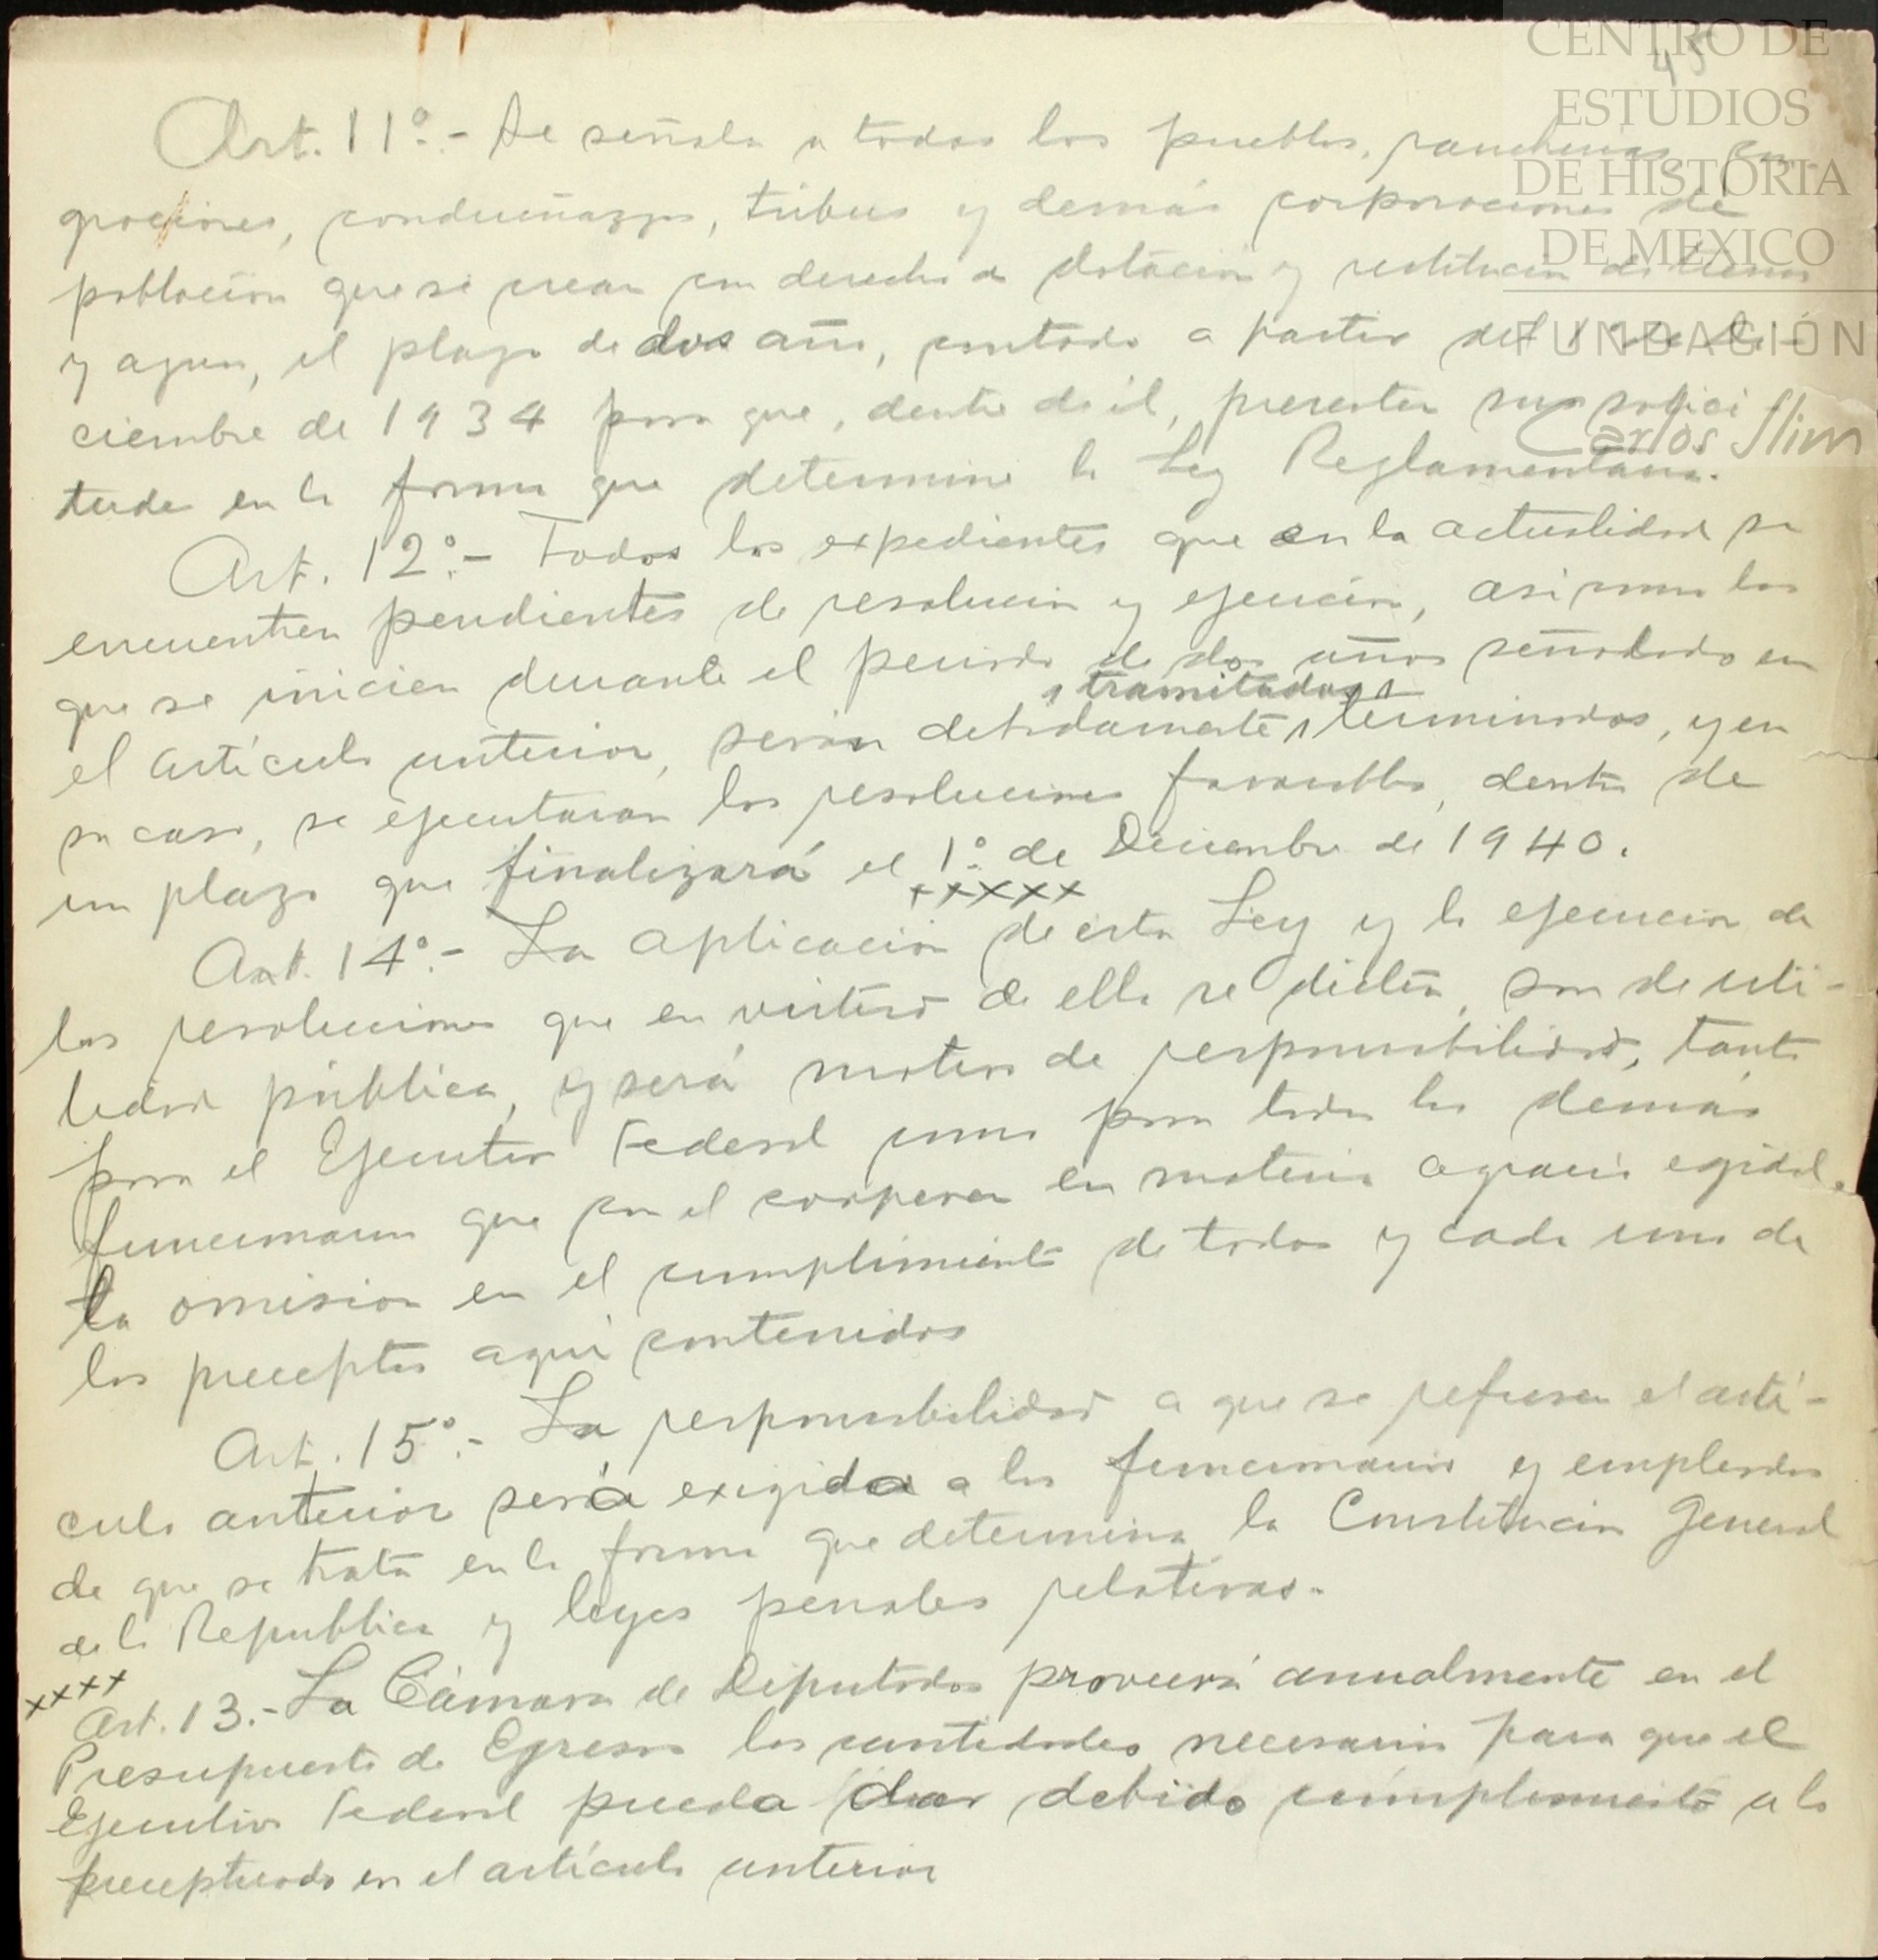 CENTRO DE
ESTUDIOS
DE HISTORIA
DE MEXICO
FUNDACIÓN
Carlos Slim
45
Art. 11º.- Se señala a todos los pueblos, rancherías, con-
gregaciones, condueñazgos, tribus y demás corporaciones de
población que se crean con derecho a dotación y restitución de tierras
y aguas, el plazo de dos años, contado a partir del 1º de Di-
ciembre de 1934 para que, dentro de él, presenten sus solici-
tudes en la forma que determine la Ley Reglamentaria.
Art. 12º.- Todos los expedientes que en la actualidad se
encuentren pendientes de resolución y ejecución, asi como los
que se inicien durante el periodo de dos años señalado en
tramitados
el artículo anterior, serán debidamente terminados, y en
su caso, se ejecutaran las resoluciones favorables, dentro de
un plazo que finalizará el 1º. de Diciembre de 1940.
xxxxx
Art. 14º.- La aplicación de esta Ley y la ejecución de
las resoluciones que en virtud de ella se dicten, son de uti-
lidad pública, y será motivo de responsabilidad, tanto
para el Ejecutivo Federal como para todos los demás
funcionarios que con el cooperen en materia agraria ejidal,
la omision en el cumplimiento de todos y cada uno de
los preceptos aqui contenidos
Art. 15º.- La responsabilidad a que se refiere el artí-
culo anterior será exigida a los funcionarios y empleados
de que se trata en la forma que determina la Constitución General
de la Republica y leyes penales relativas.-
xxxx
Art. 13.- La Cámara de Diputados proveerá anualmente en el
Presupuesto de Egresos las cantidades necesarias para que el
Ejecutivo Federal pueda dar debido cumplimiento a lo
preceptuado en el artículo anterior